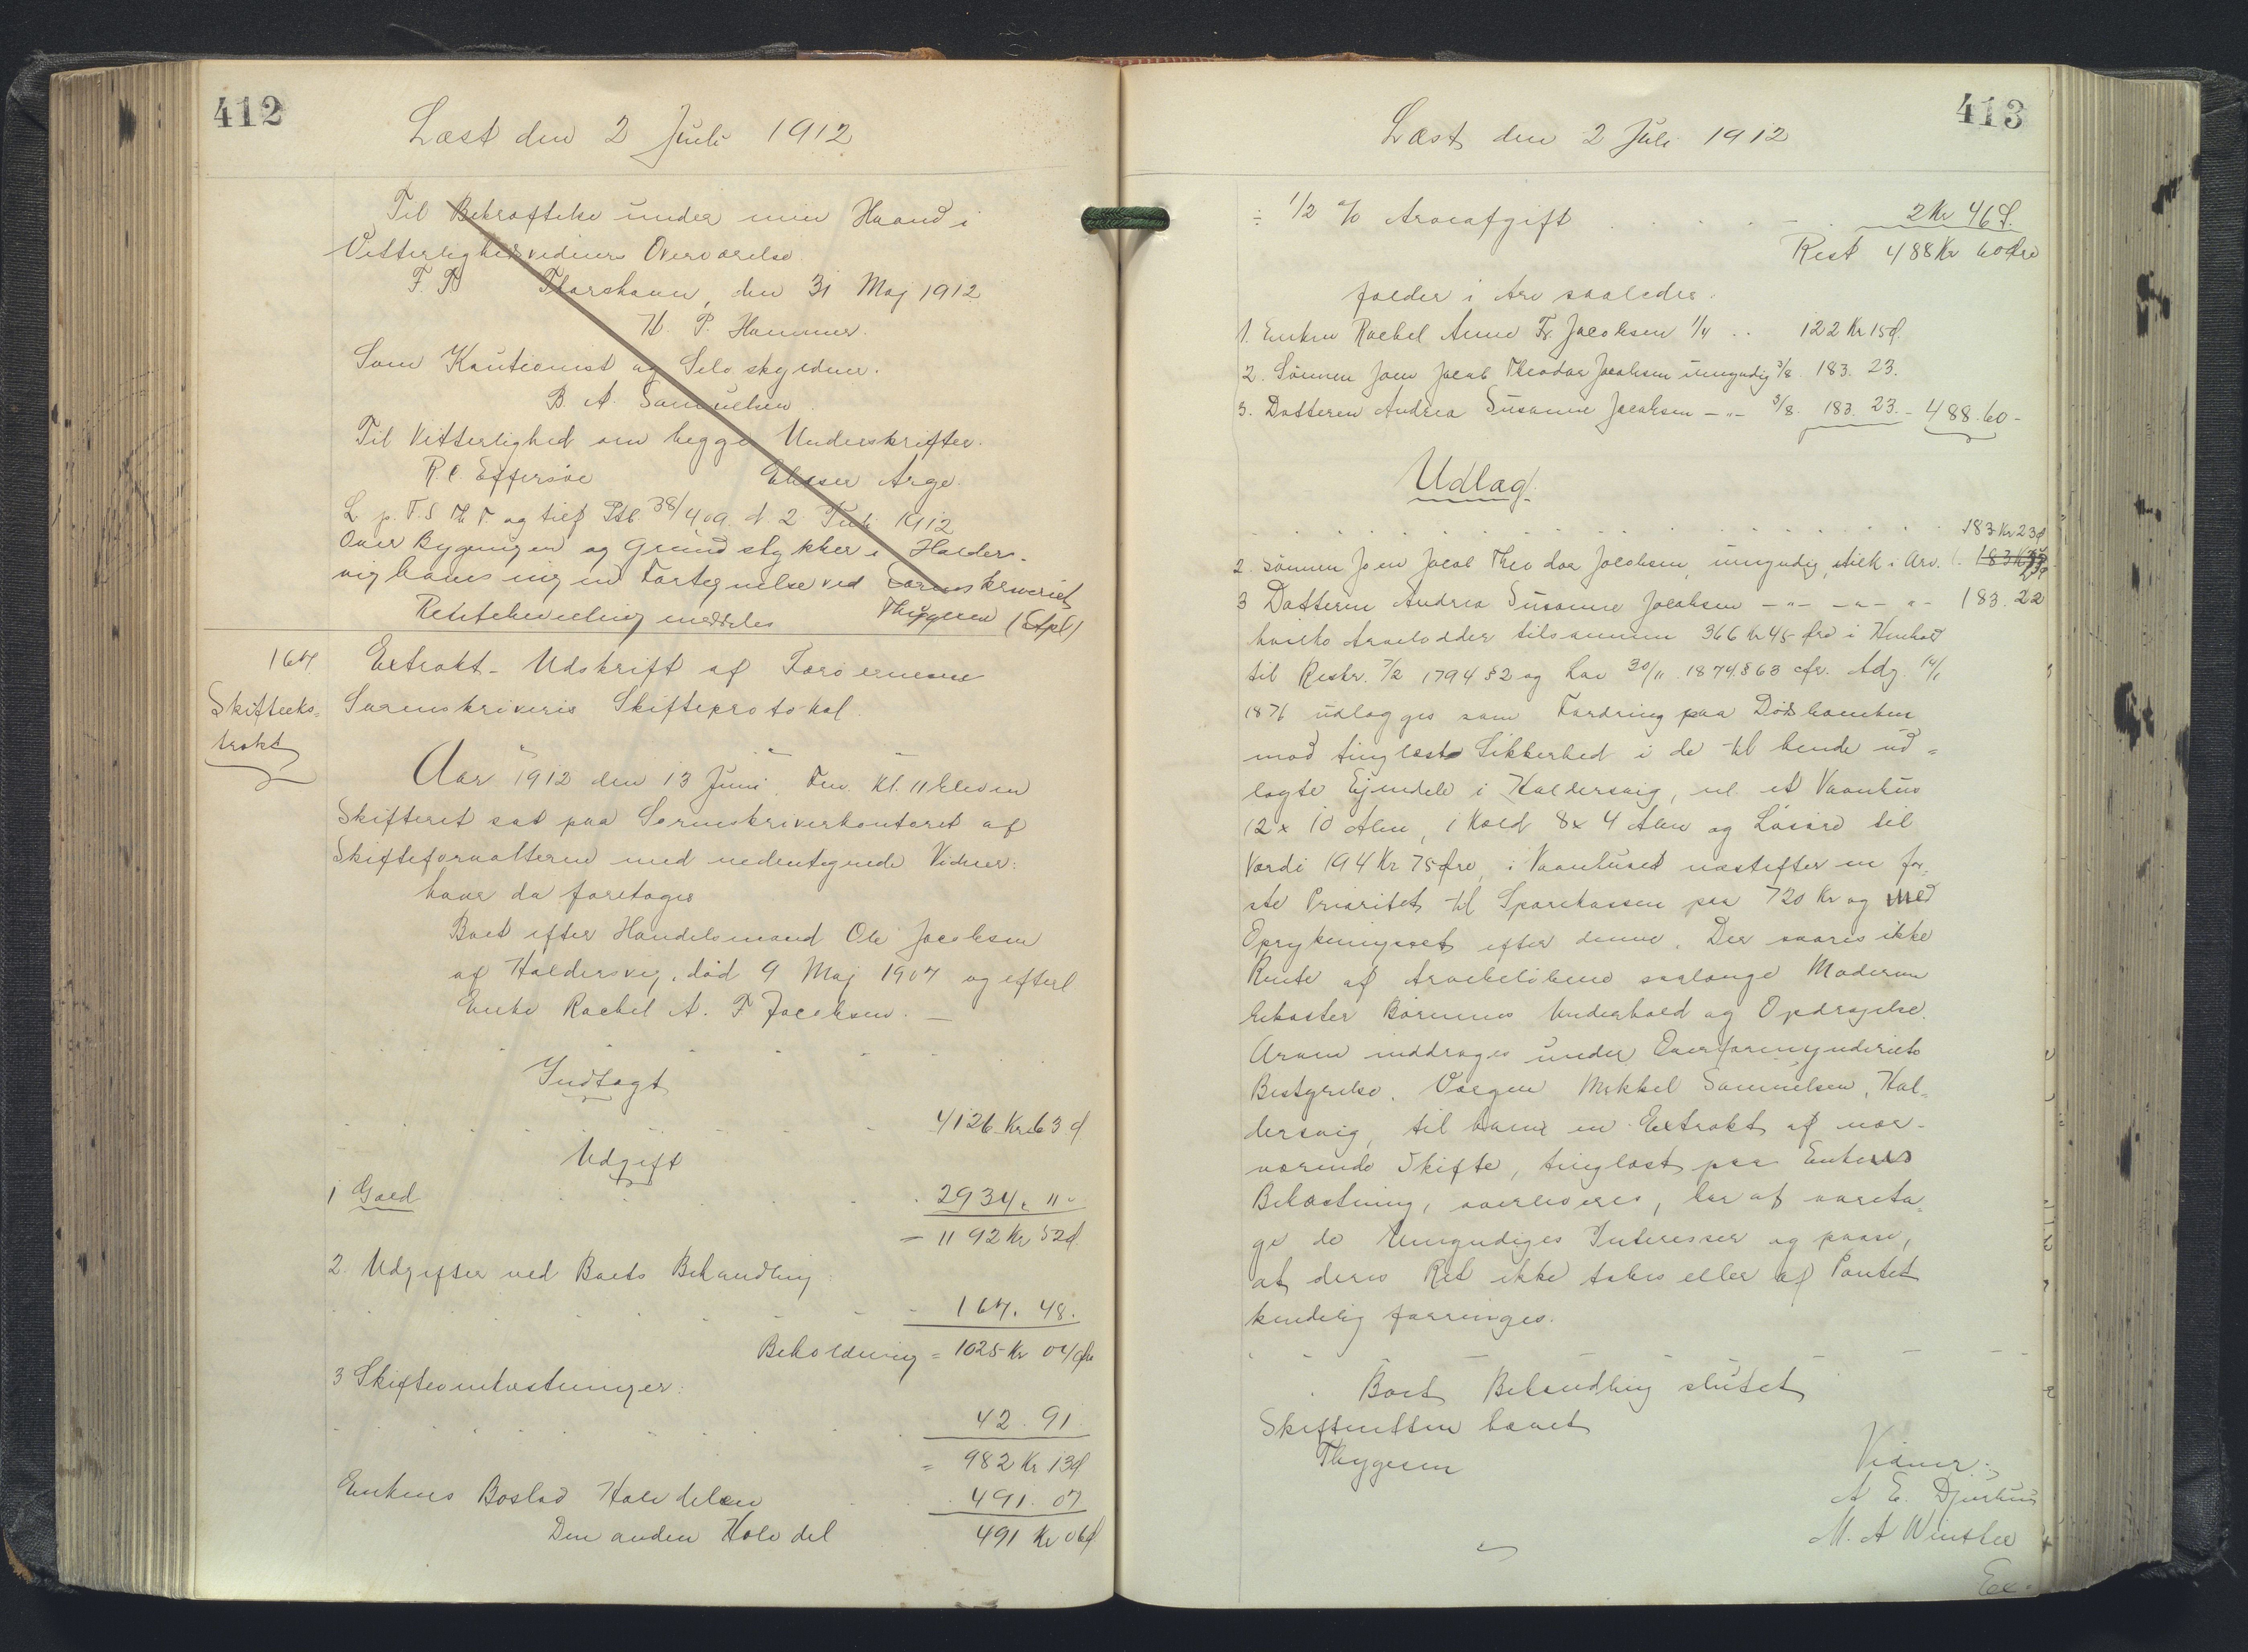 412
Læst den 2 Juli 1912
Til Bekræftelse under min Haand i
Vitterlighedsvidners Overværelse
F. F. Thorshavn, den 31 Maj 1912
H. P. Hammer.
Som Kautionist og Selvskyldner.
B. A. Samuelsen.
Til Vitterlighed om begge Underskrifter.
R. C. Effersøe Elieser Arge.
L. p. T. S. Th. og tilf Ptb. 38/409. d 2 Juli 1912
Over Bygningen og Grundstykker i Halders-
vig haves ingen Fortegnelse ved Sorenskriveriet
Retsbevidning meddeles Thygesen (Stpl)
164
Skifteeks=
trakt
Extrakt-Udskrift af Færøernes
Sorenskriveris Skifteprotokol.
Aar 1912 den 13 Juni Fm. Kl. 11 Eleven
Skifteret sat paa Sorenskriverkontoret af
Skifteforvalteren med undertegnede Vidner:
hvor da foretoges
Boet efter Handelsmand Ole Jacobsen
af Haldersvig, død 9 Maj 1907 og efterl
Enke Rachel A. F. Jacobsen. —
Indtægt
4126 Kr 63 Ø
Udgift
1 Gæld 2934. 11 -
— 1192 Kr 52 Ø
2. Udgifter ved Boets Behandling:
167. 48.
Beholdning = 1025 Kr 04 Øre
3 Skifteomkostninger:
42. 91
= 982 Kr 13 Ø
Enkens Boslod Halvdelen 491. 07
Den anden Halvdel 491 Kr 06 Ø
413
Læst den 2 Juli 1912
÷ 1/2 % Arveafgift 2 Kr 46 Ø.
Rest 488 Kr 60 Øre
falder i Arv saaledes:
1. Enken Rachel Anne F. Jacobsen 1/4 .. 122 Kr 15 Ø.
2. Sønnen Joen Jacob Theodor Jacobsen umyndig 3/8. 183. 23.
3. Datteren Andrea Susanne Jacobsen — " — 3/8. 183. 23. - 488. 60 -
Udlæg.
183 Kr 23 Ø
2. Sønnen Joen Jacob Theodor Jacobsen, umyndig, i Arv. 183 Kr
3 Datteren Andrea Susanne Jacobsen — " — — " — " — 183. 22
hvilke Arvelodder tilsammen 366 Kr 45 Øre i Henhold
til Reskr. 7/2 1794 § 2 og Lov 30/11 1874 § 63 cfr. Adg. 14/1
1876 udlægges som Fordring paa Dødsboenken
mod tinglæst Sikkerhed i de til hende ud=
lagte Ejendele i Haldersvig, nl. et Vaanhus
12 x 10 Alen, i Kæld 8 x 4 Alen og Løsøre til
Værdi 194 Kr 75 Øre, i Vaanhuset næstefter en før-
ste Prioritet til Sparekassen paa 720 Kr og med
Oprykningsret efter denne. Der svares ikke
Rente af Arvebeløbene saalænge Moderen
bekoster Børnenes Underhold og Opdragelse.
Arven inddrages under Overformynderiets
Bestyrelse. Værgen Mikkel Samuelsen, Hal=
dersvig, til hvem en Extrakt af nær-
værende Skifte, tinglæst paa Enkens
Bekostning, overleveres, har at vareta=
ge de Umyndiges Interesser og paase,
at deres Ret ikke tabes eller af Pantet
kendelig forringes.
Boets Behandling sluttet
Skifteretten hævet
Thygesen
Vidner:
A E. Djurhuus
M. A Winther
Ex-